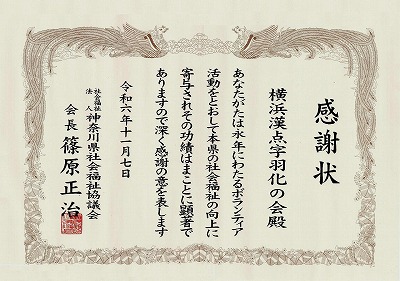 感謝状
横浜漢点字羽化の会殿
あなたがたは永年にわたるボランティア
活動をとおして本県の社会福祉の向上に
寄与されその功績はまことに顕著で
ありますので深く感謝の意を表します
令和六年十一月七日
社会福祉法人神奈川県社会福祉協議会
会長 篠原正治